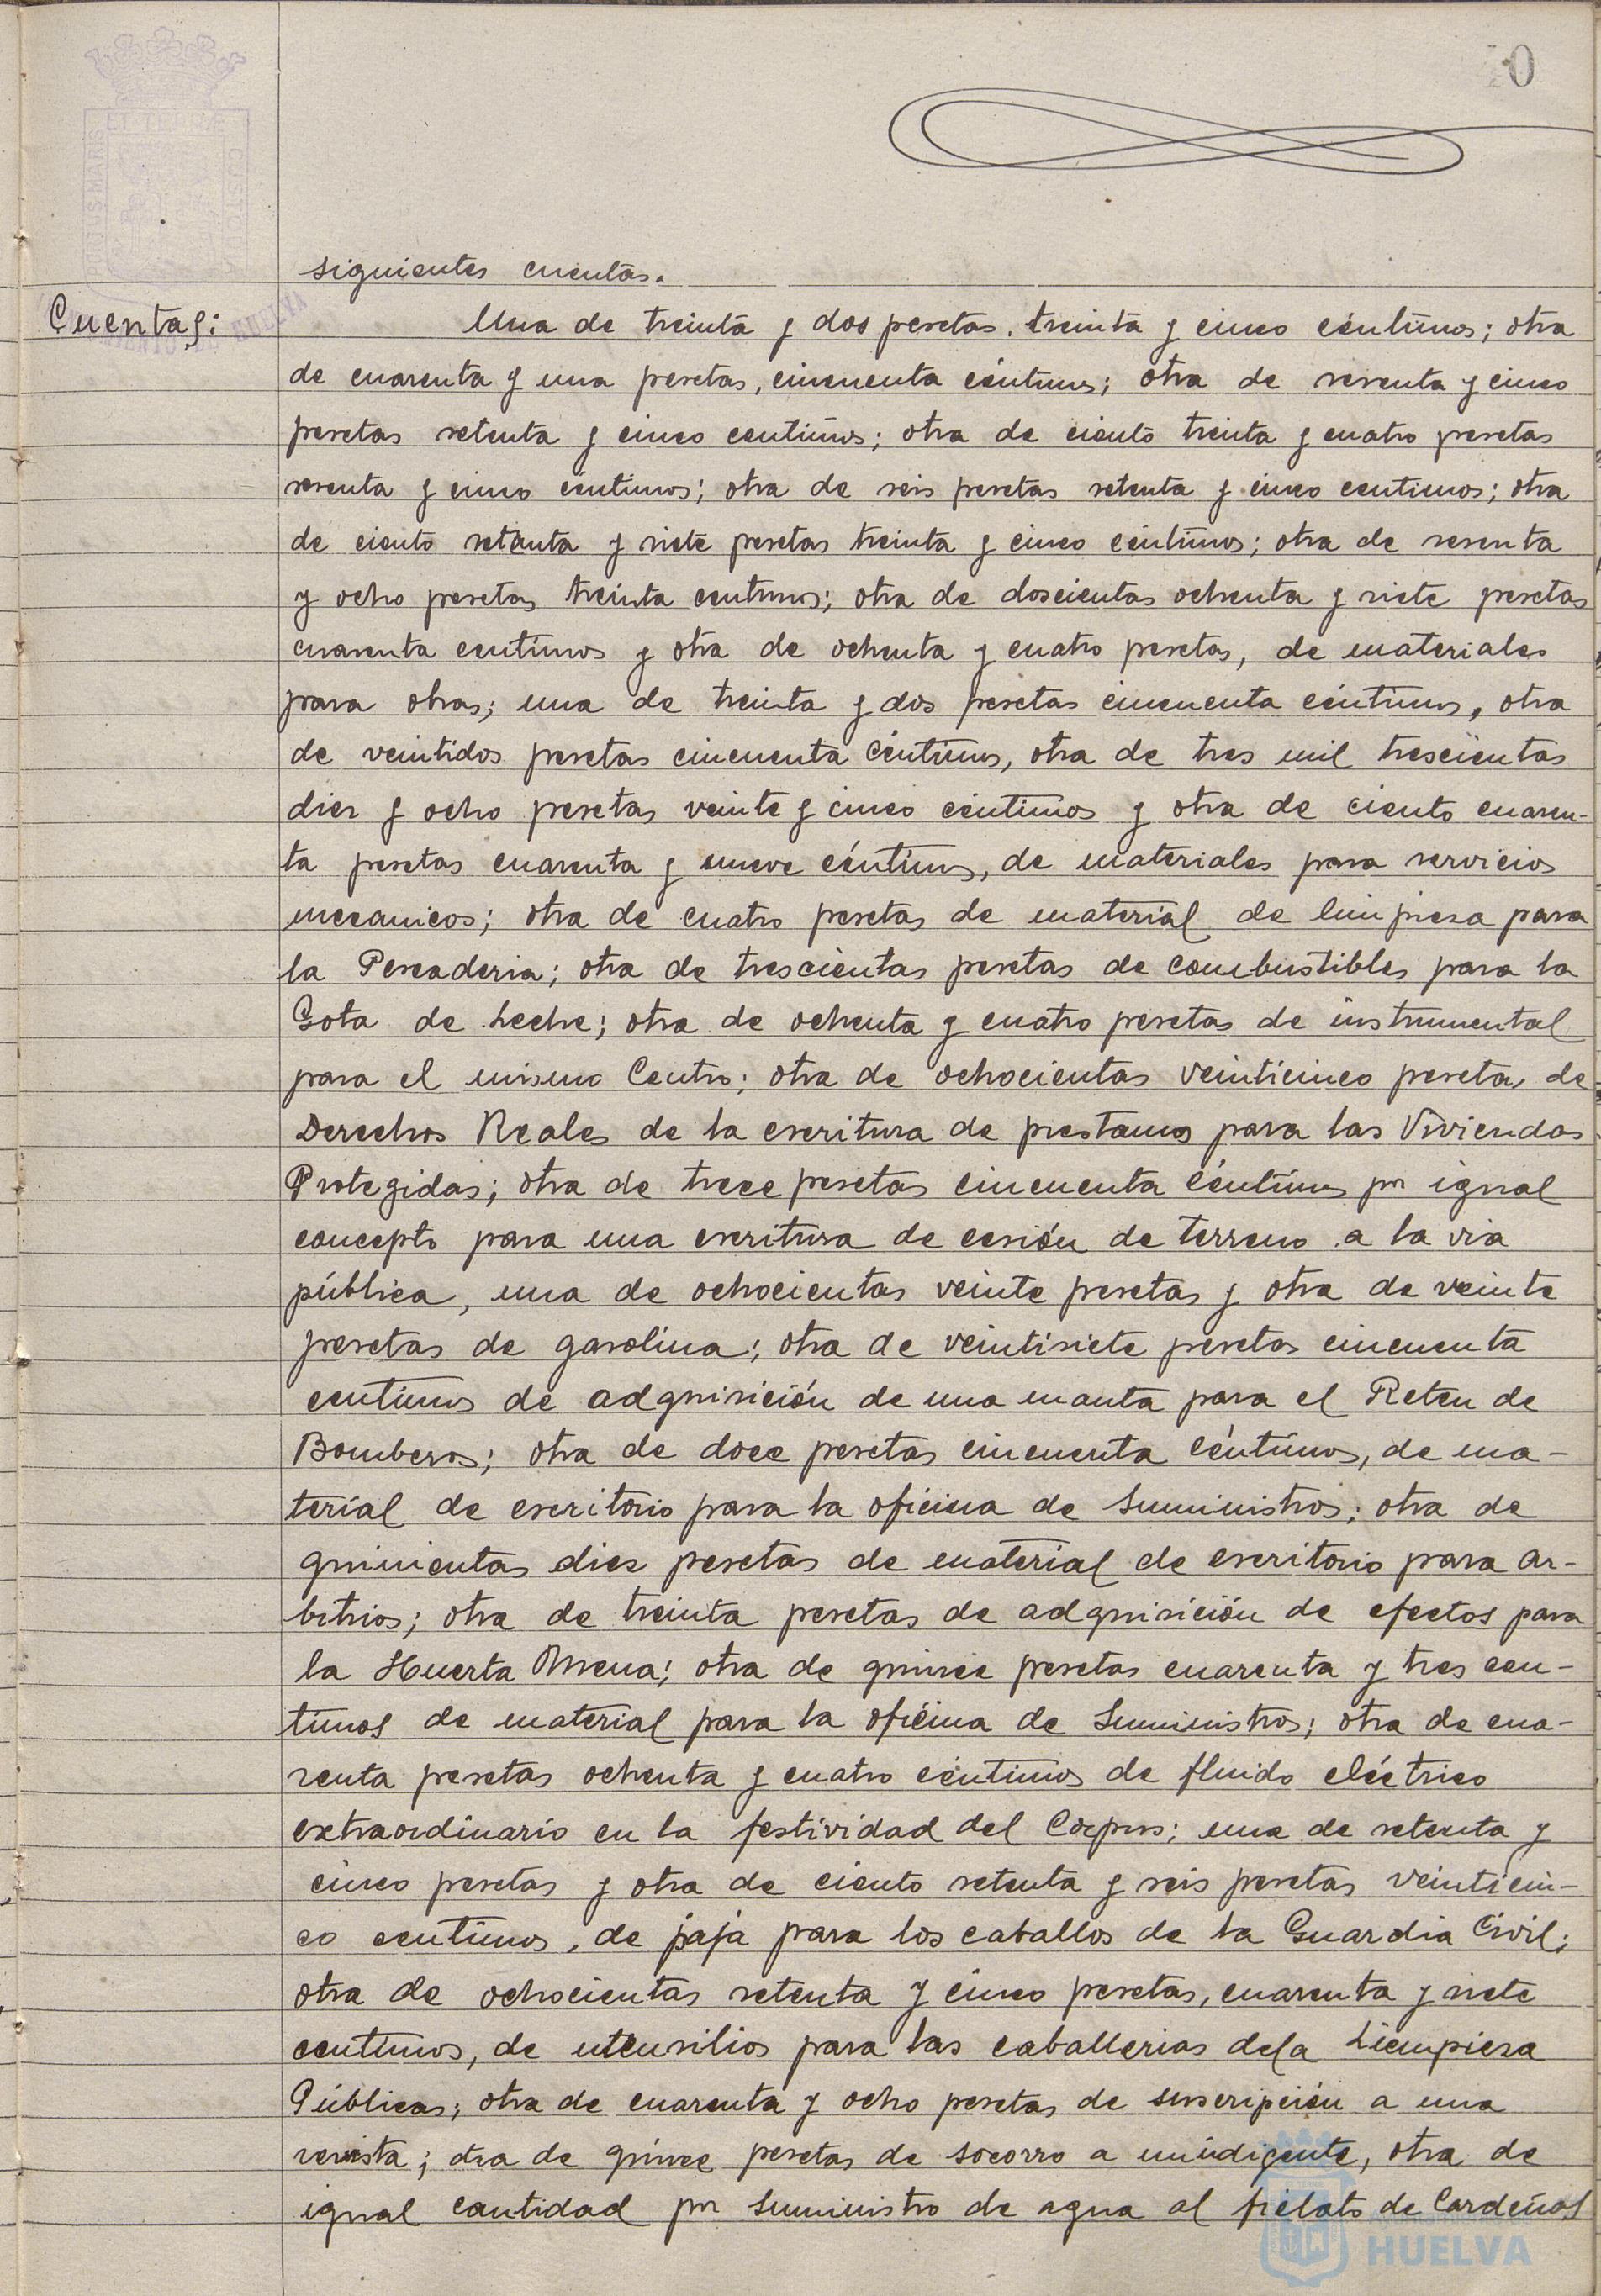 siguientes cuentas.
Cuentas:
Una de treinta y dos pesetas, treinta y cinco céntimos; otra
de cuarenta y una pesetas, cincuenta céntimos; otra de sesenta y cinco
pesetas setenta y cinco centimos; otra de ciento treinta y cuatro pesetas
sesenta y cinco centimos; otra de seis pesetas setenta y cinco centimos; otra
de ciento setenta y siete pesetas treinta y cinco céntimos; otra de sesenta
y ocho pesetas treinta centimos; otra de doscientas ochenta y siete pesetas
cuarenta centimos y otra de ochenta y cuatro pesetas, de materiales
para obras; una de treinta y dos pesetas cincuenta céntimos, otra
de veintidos pesetas cincuenta céntimos, otra de tres mil trescientas
diez y ocho pesetas veinte y cinco céntimos y otra de ciento cuaren-
ta pesetas cuarenta y nueve céntimos, de materiales para servicios
mecanicos; otra de cuatro pesetas de material de limpieza para
la Pescaderia; otra de trescientas pesetas de combustibles para la
Gota de Leche; otra de ochenta y cuatro pesetas de instrumental
para el mismo Centro; otra de ochocientas veinticinco pesetas de
Derechos Reales de la escritura de prestamo para las Viviendas
Protegidas; otra de trece pesetas cincuenta céntimos por igual
concepto para una escritura de cesión de terreno a la via
pública, una de ochocientas veinte pesetas y otra de veinte
pesetas de gasolina; otra de veintisiete pesetas cincuenta
centimos de adquisición de una manta para el Reten de
Bomberos; otra de doce pesetas cincuenta céntimos, de ma-
terial de escritorio para la oficina de Suministros; otra de
quinientas diez pesetas de material de escritorio para Ar-
bitrios; otra de treinta pesetas de adquisición de efectos para
la Huerta Mena; otra de quince pesetas cuarenta y tres cen-
timos de material para la oficina de Suministros; otra de cua-
renta pesetas ochenta y cuatro céntimos de fluido eléctrico
extraordinario en la festividad del Corpus; una de setenta y
cinco pesetas y otra de ciento setenta y seis pesetas veinticin-
co centimos, de paja para los caballos de la Guardia Civil;
otra de ochocientas setenta y cinco pesetas, cuarenta y siete
centimos, de utensilios para las caballerias dela Liempieza
Públicas; otra de cuarenta y ocho pesetas de suscripción a una
revista; otra de quince pesetas de socorro a unindigente, otra de
igual cantidad por suministro de agua al fielato de Cardeñas
HUELVA